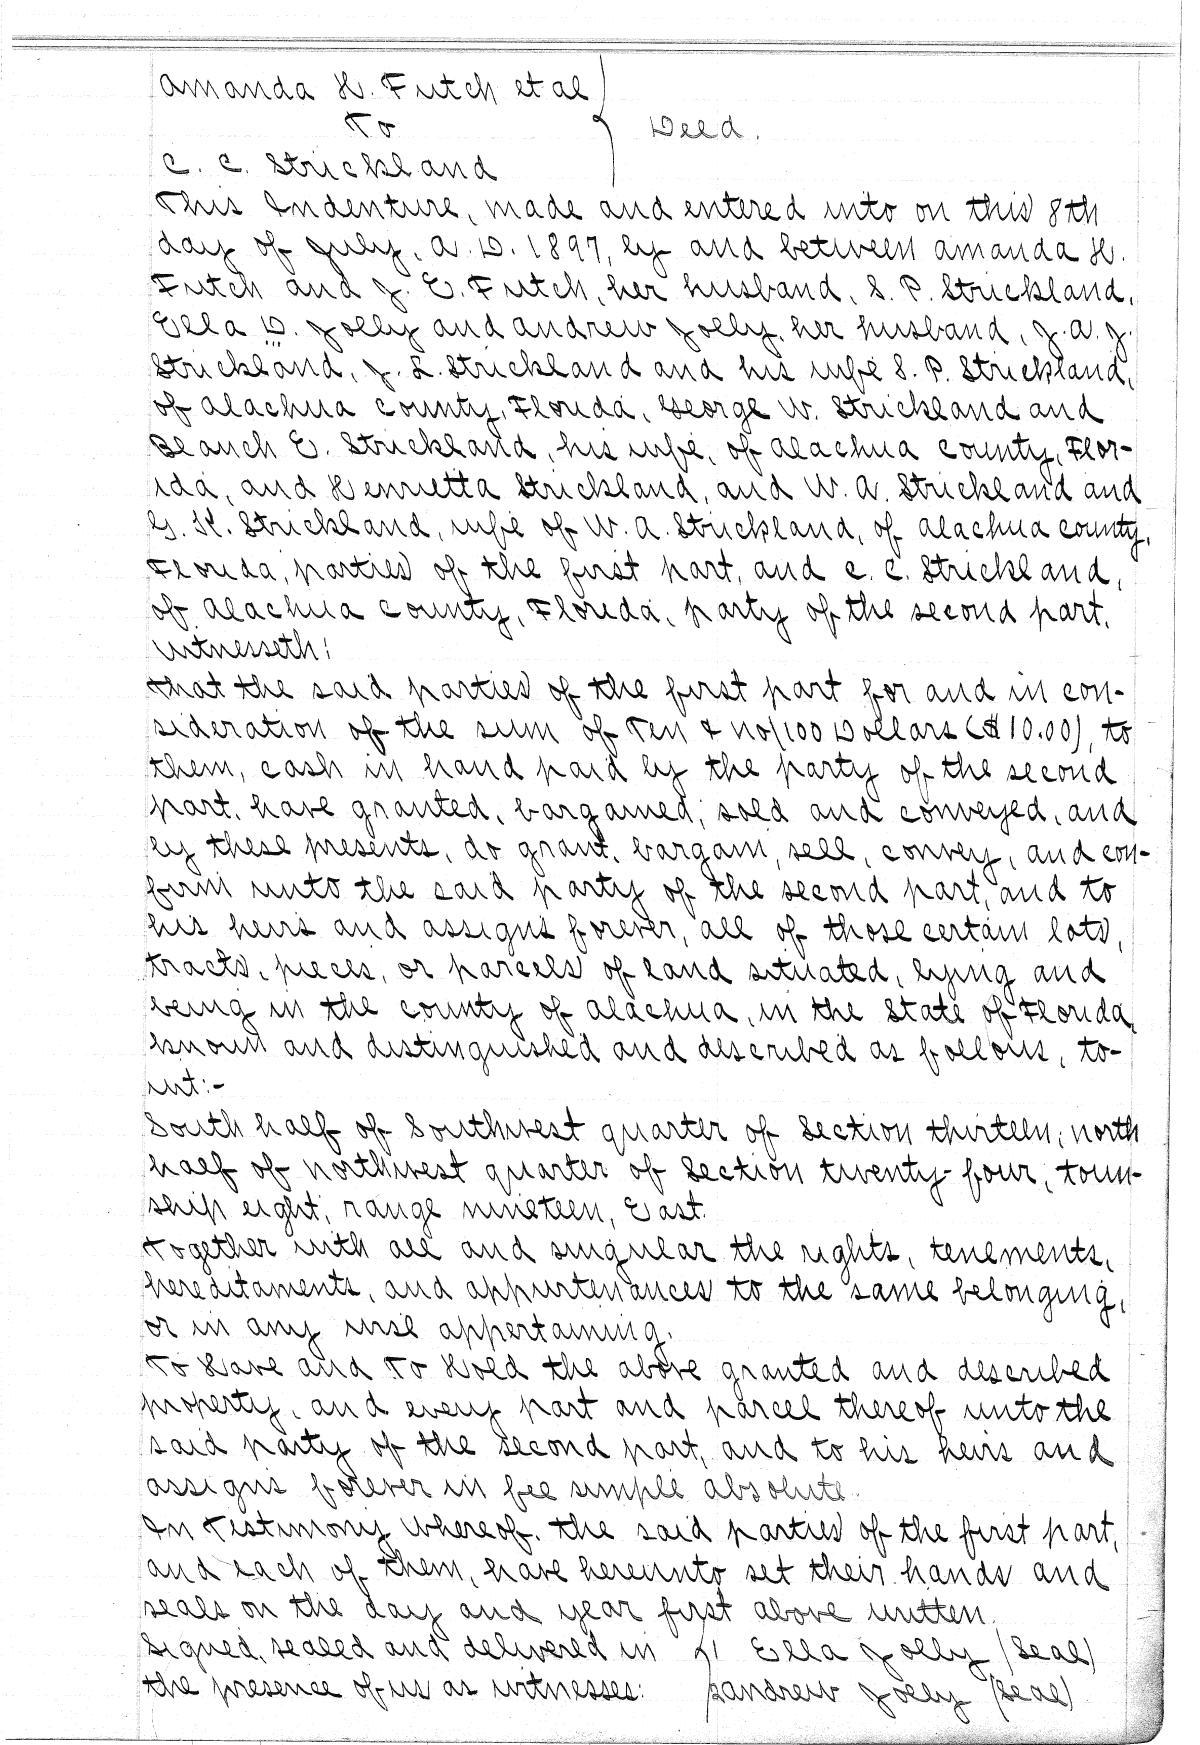 Amanda H. Futch et al
To
Deed.
C. C. Strickland
This Indenture, made and entered into on this 8th
day of July, A. D. 1897, by and between Amanda H.
Futch and J. E. Futch, her husband, S. P. Strickland,
Ella D. Jolly and Andrew Jolly, her husband, J. A. J.
Strickland, J. L. Strickland and his wife S. P. Strickland,
of Alachua County, Florida, George W. Strickland and
Blanch E. Strickland, his wife, of Alachua County, Flor-
ida, and Henrietta Strickland, and W. A. Strickland and
G. K. Strickland, wife of W. A. Strickland, of Alachua County,
Florida, parties of the first part, and C. C. Strickland,
of Alachua County, Florida, party of the second part.
Witnesseth:
That the said parties of the first part for and in con-
sideration of the sum of Ten & no/100 Dollars ($10.00), to
them, cash in hand paid by the party of the second
part, have granted, bargained, sold and conveyed, and
by these presents, do grant, bargain, sell, convey, and con-
firm unto the said party of the second part, and to
his heirs and assigns forever, all of those certain lots,
tracts, pieces, or parcels of land situated, lying and
being in the county of Alachua, in the State of Florida,
known and distinguished and described as follows, to-
wit:-
South half of Southwest quarter of Section thirteen; north
half of northwest quarter of Section twenty-four, town-
ship eight, range nineteen, East.
Together with all and singular the rights, tenements,
hereditaments, and appurtenances to the same belonging,
or in any wise appertaining.
To Have and To Hold the above granted and described
property, and every part and parcel thereof unto the
said party of the second part, and to his heirs and
assigns forever in fee simple absolute.
In Testimony Whereof, the said parties of the first part,
and each of them, have hereunto set their hands and
seals on the day and year first above written.
Signed, sealed and delivered in 1 Ella Jolly (Seal)
the presence of us as witnesses: 2 Andrew Jolly (Seal)